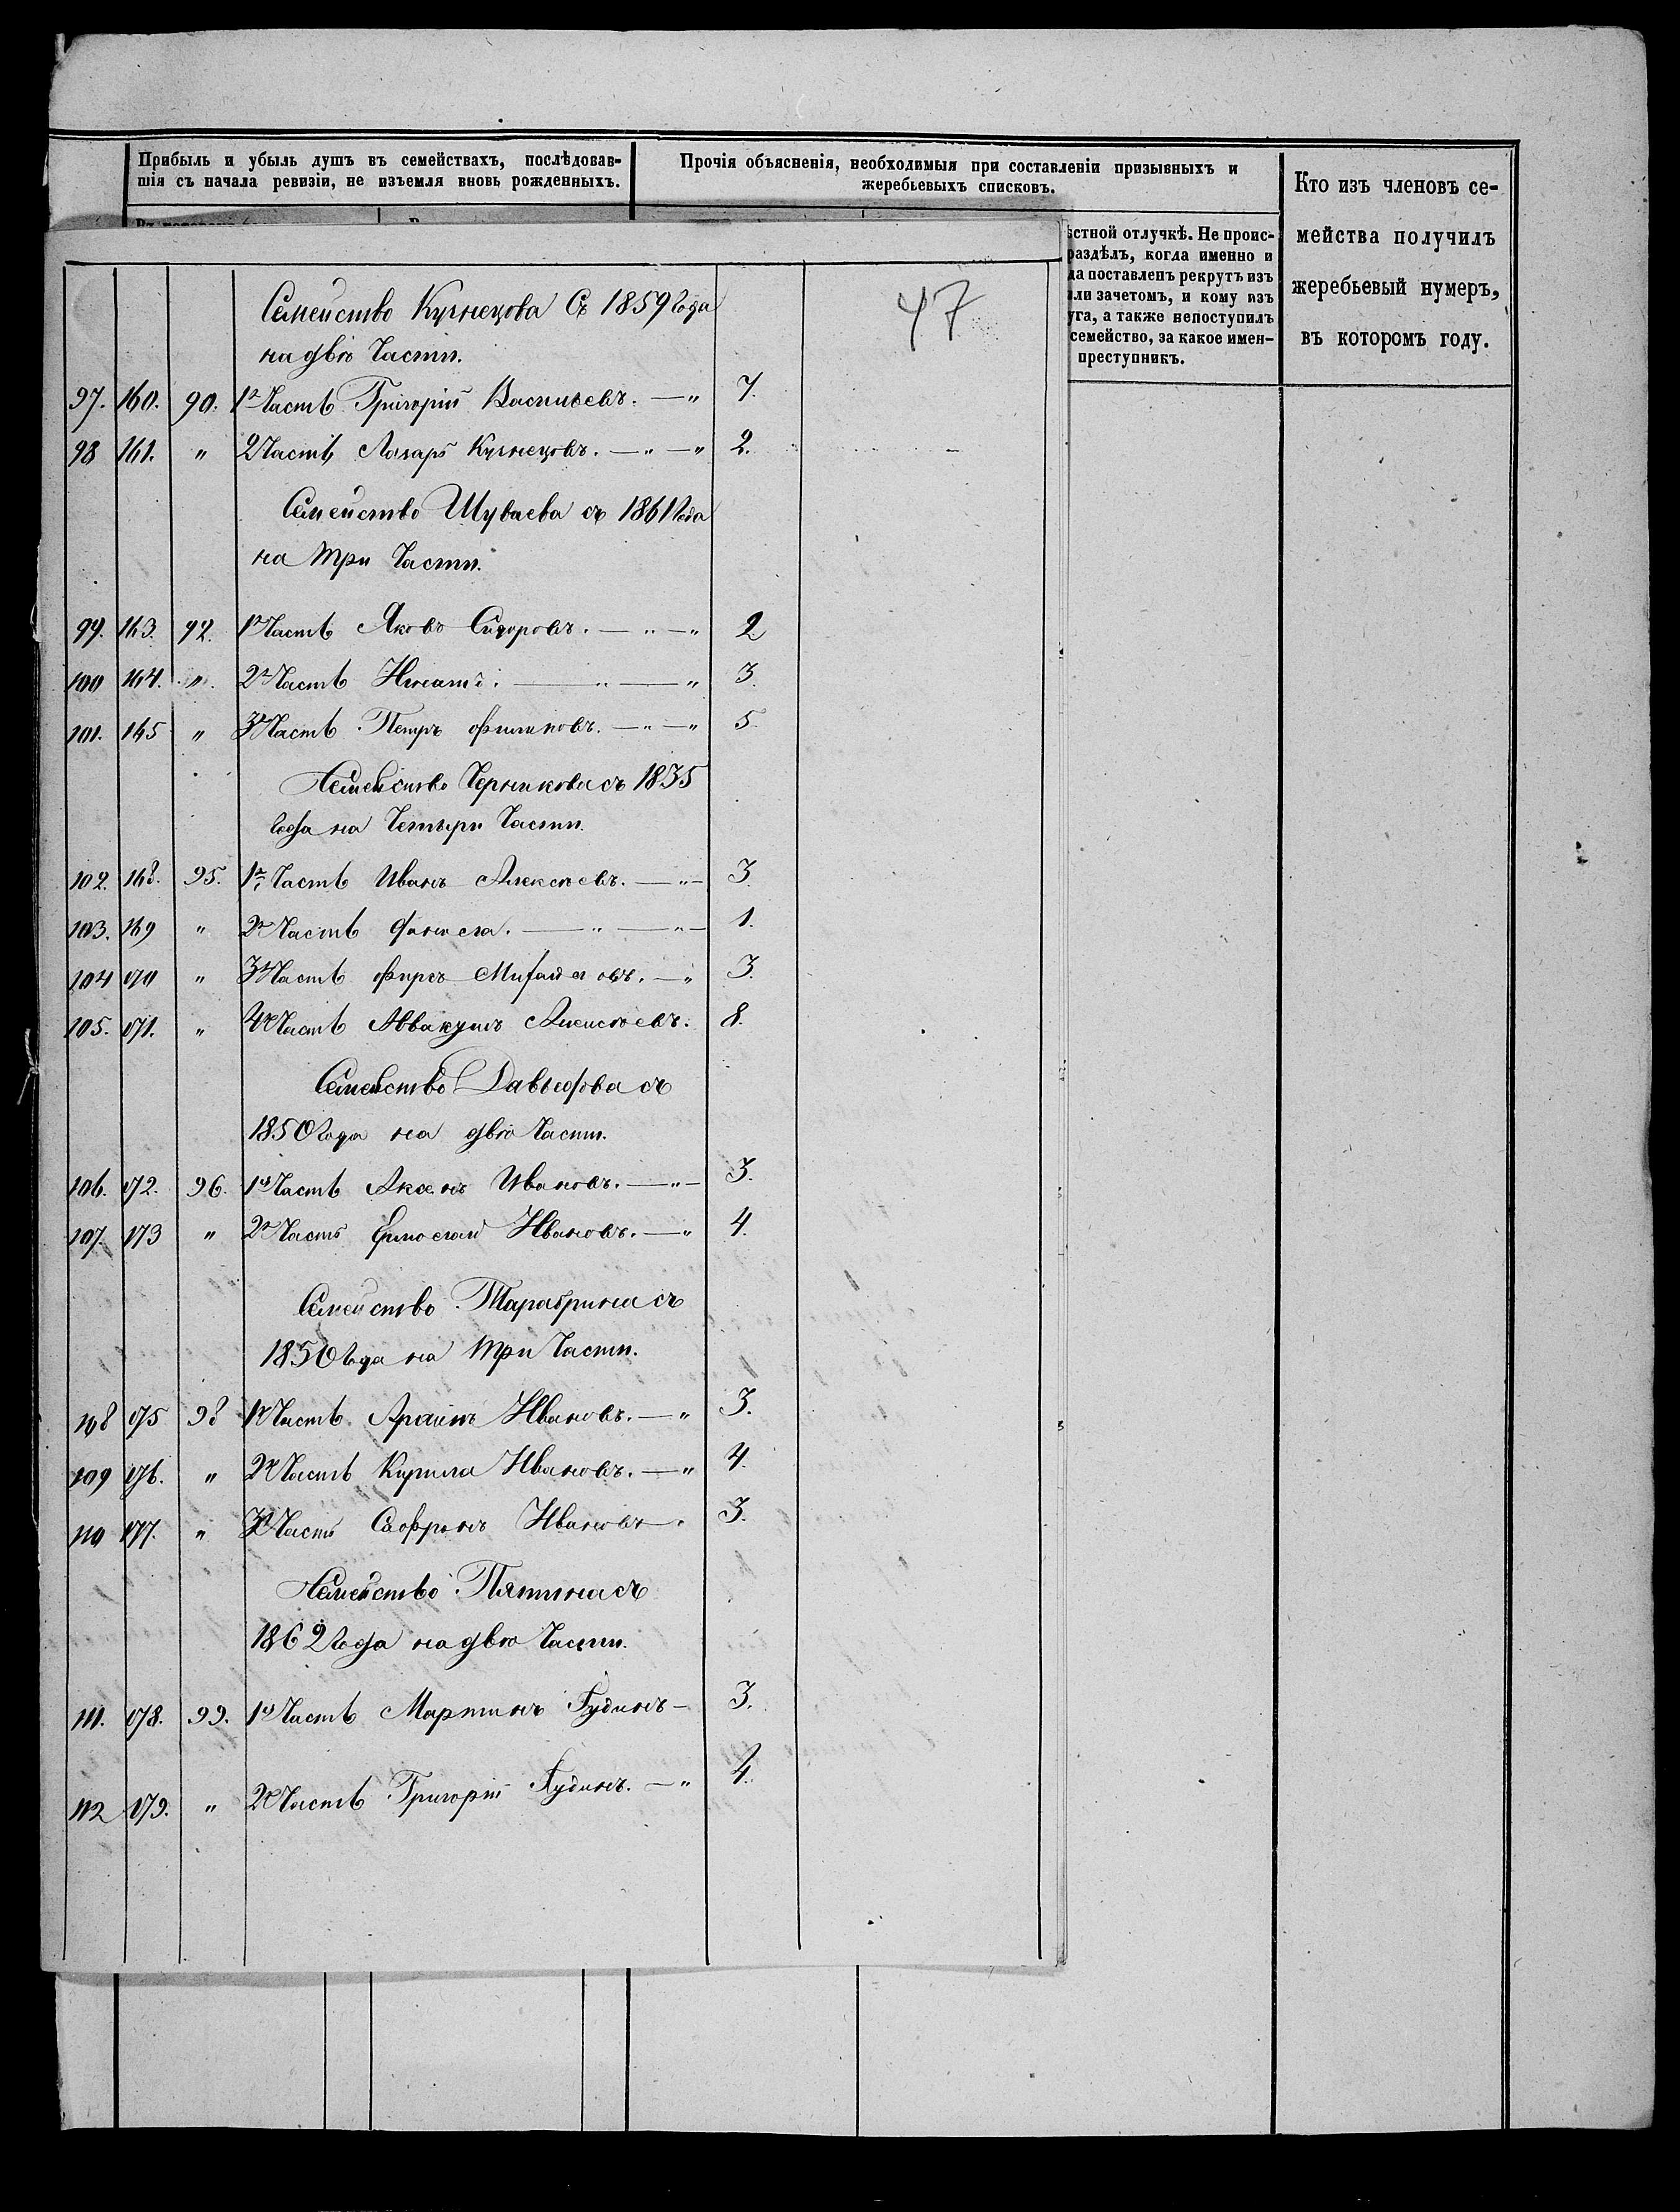 Прибыль и убыль душъ въ семействахъ, послѣдовав-
шія съ начала ревизіи, не изъемля вновь рожденныхъ.
Прочія объясненія, необходимыя при составленіи призывныхъ и
жеребьевыхъ списковъ.
Кто изъ членовъ се-
мейства получилъ
жеребьевый нумеръ,
въ которомъ году.
ѣстной отлучкѣ. Не проис-
раздѣлъ, когда именно и
да поставленъ рекрутъ изъ
или зачетомъ, и кому изъ
уга, а также непоступилъ
семейство, за какое имен-
преступникъ.
47
Семейство Кузнецова Съ 1859 года
на двѣ Части.
97. 160. 90. 1я Часть Григорій Васильевъ. — „ 7.
98 161. „ 2 Часть Лазарь Кузнецовъ. — „ — „ 2.
Семейство Шуваева съ 1861 Года
на три Части.
99. 163. 92. 1я Часть Яковъ Сидоровъ. — „ — „ 2
100 164. „ 2я Часть Игнатъ. — „ — „ 3.
101. 165 „ 3я Часть Петръ Филиповъ. — „ — „ 5.
Семейство Черникова съ 1835
Года на Четыри Части.
102. 168. 95. 1я Часть Иванъ Алексѣевъ. — „ — 3.
103. 169 „ 2я Часть — „ — „ — 1.
104 170 „ 3я Часть Фирсъ Михайловъ. — „ 3.
105. 171. „ 4я Часть Аввакумъ Алексѣевъ. 8.
Семейство Давыдова съ
1850 года на двѣ Части.
106. 172. 96. 1я Часть Аксенъ Ивановъ. — „ — 3.
107. 173 „ 2я Часть Ермолай Ивановъ. — „ 4.
Семейство Тарабрина съ
1850 года на три Части.
108 175 98 1я Часть Ивановъ. — „ 3.
109 176. „ 2я Часть Кирила Ивановъ. — „ 4.
110 177. „ 3я Часть Софронъ Ивановъ. 3.
Семейство Пятина съ
1862 Года на двѣ Части.
111. 178. 99. 1я Часть Мартинъ Гудинъ — 3.
112 179. „ 2я Часть Григорій Гудинъ. — „ 4.